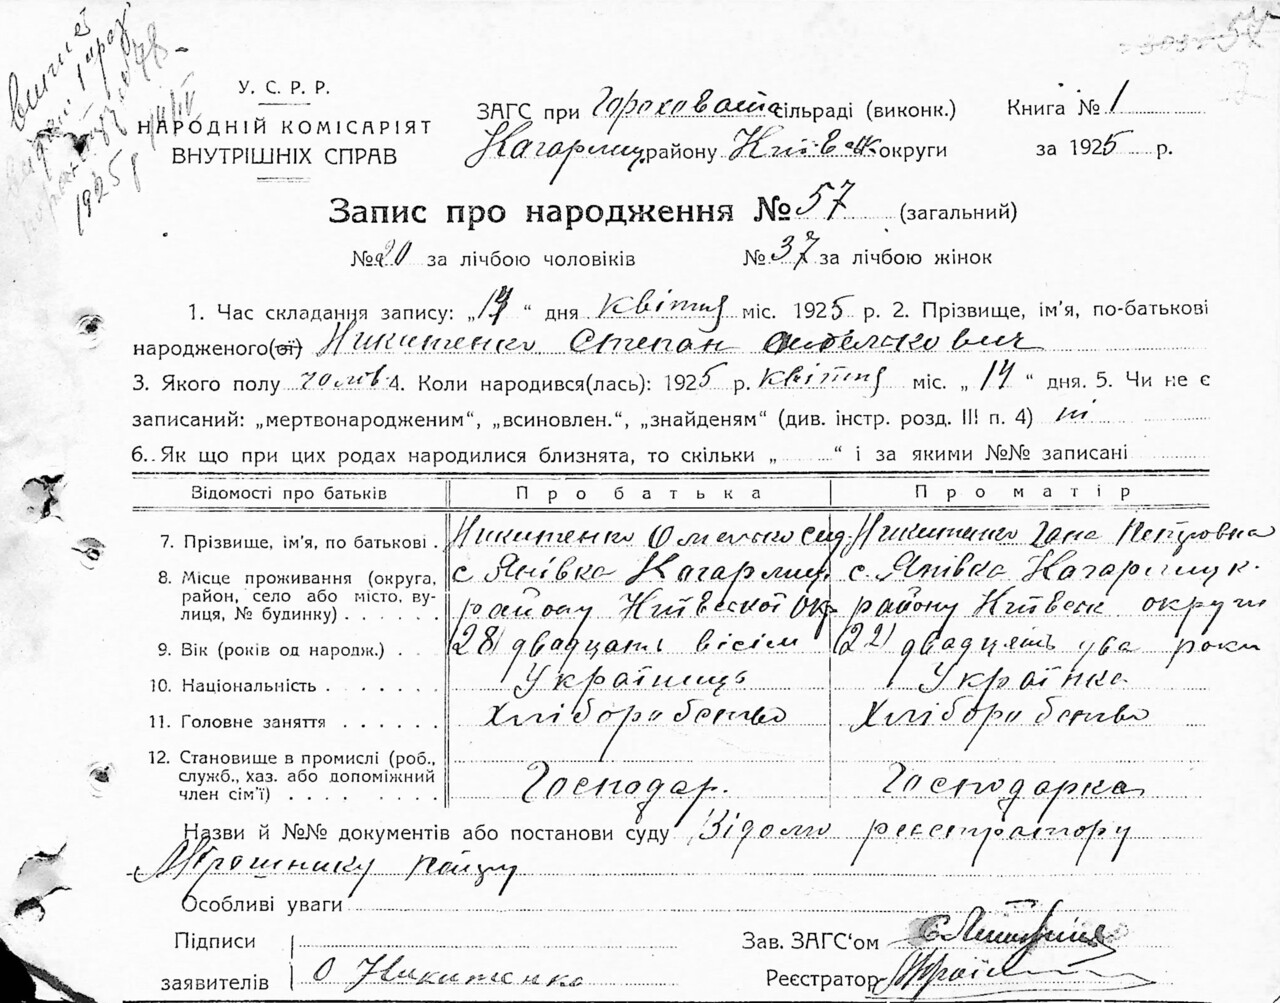 У. С. Р. Р.
НАРОДНІЙ КОМІСАРІЯТ
ВНУТРІШНІХ СПРАВ
1925 р
ЗАГС при Гороховат сільраді (виконк.)
Кагарлиц. району Київськ округи
Книга № 1
за 1925 р.
Запис про народження № 57 (загальний)
№ 20 за лічбою чоловіків № 37 за лічбою жінок
1. Час складання запису: „ “ дня квітня міс. 1925 р. 2. Прізвище, ім'я, по-батькові
народженого(ої) Никитенко Степан Омелькович
3. Якого полу чолов 4. Коли народився(лась): 1925 р. квітня міс. „ 14 “ дня. 5. Чи не є
записаний: „мертвонародженим“, „всиновлен.“, „знайденям“ (див. інстр. розд. III п. 4) ні
6. Як що при цих родах народилися близнята, то скільки „ “ і за якими №№ записані
Відомості про батьків Про батька Про матір
7. Прізвище, ім'я, по батькові . Никитенко Омелько Сид. Никитенко Гана Петровна
8. Місце проживання (округа, район, село або місто, вулиця, № будинку) . . . . . .
с. Янівка Кагарлиц. району Київської окр.
с. Янівка Кагарлицк. району Київськ округи
9. Вік (років од народж.) . . 28) двадцать вісім (22) двадцять два роки
10. Національність . . . . . . . Українць Українка
11. Головне заняття . . . . . . Хліборобство Хліборобство
12. Становище в промислі (роб., служб., хаз. або допоміжний член сім'ї) . . . . . . . . Господар. Господарка
Назви й №№ документів або постанови суду Відомо реєстратору
Мірошнику
Особливі уваги
Підписи
заявителів О Никитенко
Зав. ЗАГС‘ом
Реєстратор